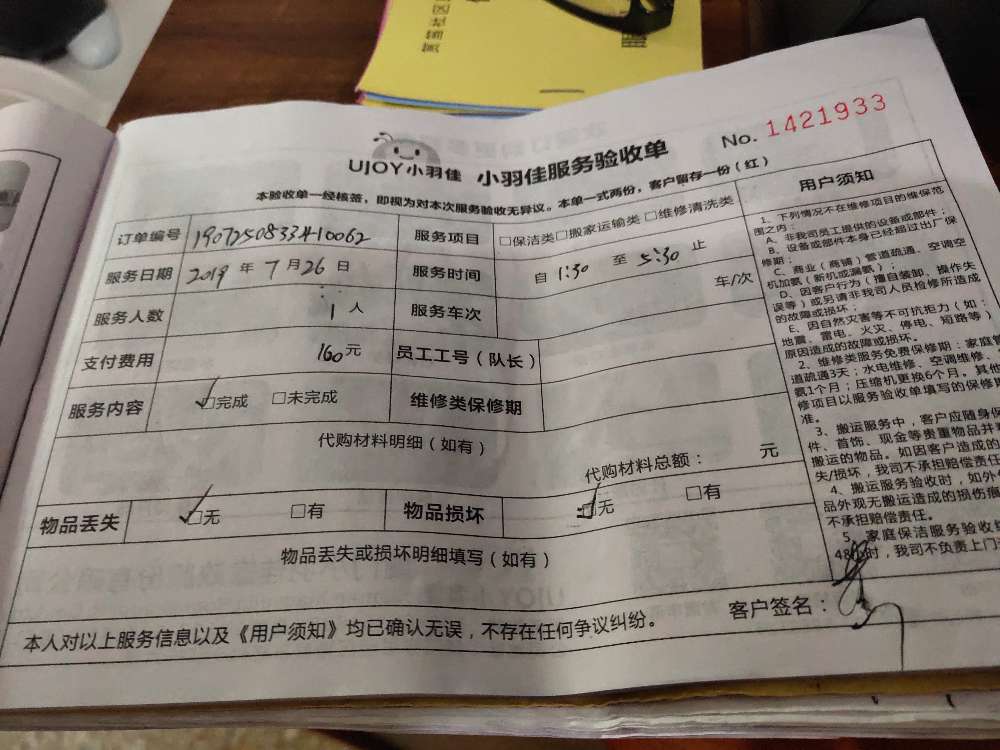 No. 1421933
UJOY小羽佳 小羽佳服务验收单
本验收单一经核签，即视为对本次服务验收无异议。本单一式两份，客户留存一份（红）
订单编号 1907250833410062 服务项目 □保洁类□搬家运输类□维修清洗类
服务日期 2019 年 7 月 26 日 服务时间 自 1:30 至 5:30 止
服务人数 1 人 服务车次 车/次
支付费用 160 元 员工工号（队长）
服务内容 □完成 □未完成 维修类保修期
代购材料明细（如有）
代购材料总额： 元
物品丢失 □无 □有 物品损坏 □无 □有
物品丢失或损坏明细填写（如有）
本人对以上服务信息以及《用户须知》均已确认无误，不存在任何争议纠纷。 客户签名：
用户须知
1、下列情况不在维修项目的维保范
围之内：
A、非我司员工提供的设备或部件；
B、设备或部件本身已经超过出厂保
修期；
C、商业（商铺）管道疏通、空调空
机加氨（新机或漏氨）；
D、因客户行为（擅自装卸、操作失
误等）或另请非我司人员检修所造成
的故障或损坏；
E、因自然灾害等不可抗拒力（如：
地震、雷电、火灾、停电、短路等）
原因造成的故障或损坏。
2、维修类服务免费保修期：家庭管
道疏通3天；水电维修、空调维修、
氨1个月；压缩机更换6个月。其他
修项目以服务验收单填写的保修期
准。
3、搬运服务中，客户应随身保
件、首饰、现金等贵重物品并
搬运的物品。如因客户造成的
失/损坏，我司不承担赔偿责任
4、搬运服务验收时，如外
品外观无搬运造成的损伤
不承担赔偿责任。
5、家庭保洁服务验收
48小时，我司不负责上门